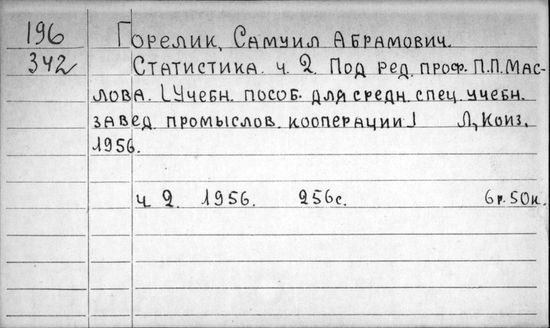 196 Горелик, Самуил Абрамович.
342 Статистика. ч. 2. Под ред. проф. П.П. Мас-
лова. [Учебн. пособ. для средн. спец. учебн.
завед. промыслов. кооперации] Л, Коиз,
1956.
ч. 2. 1956. 256с. 6р. 50к.